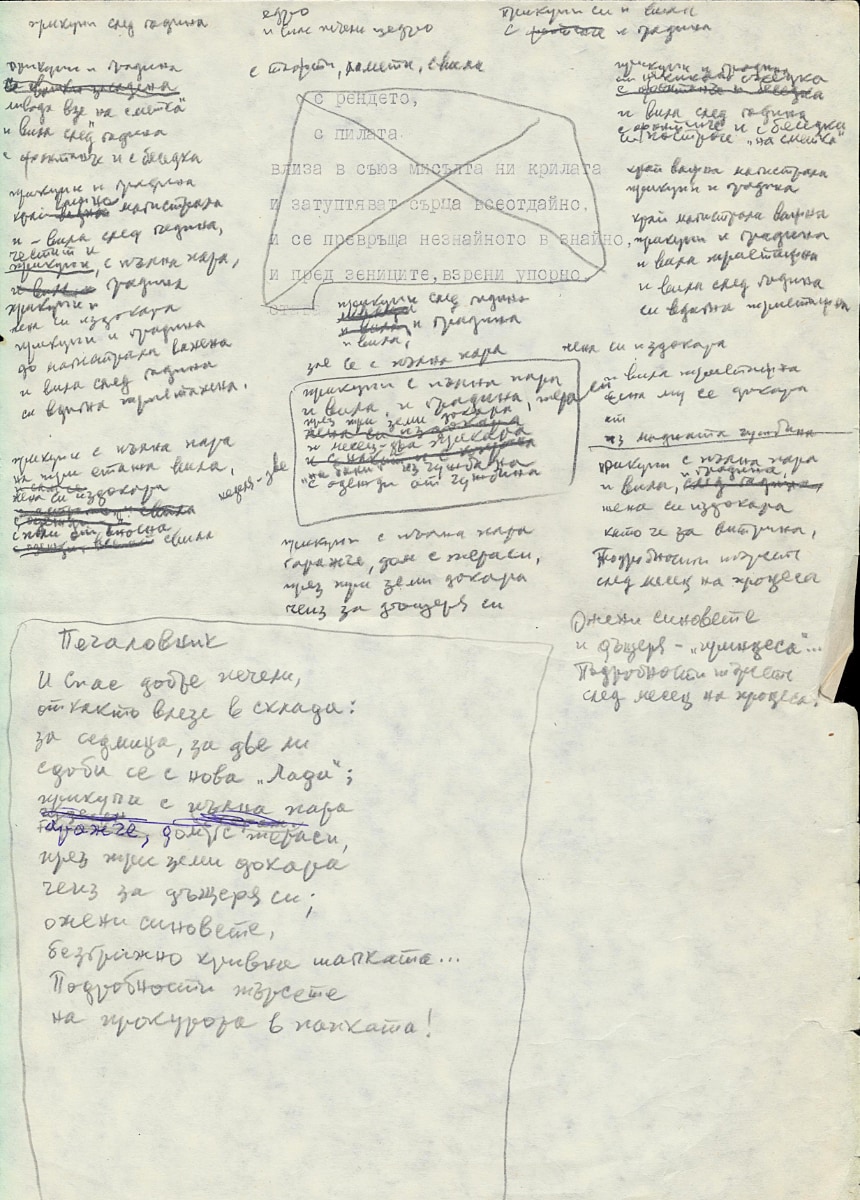 прикупи след година
едро
и Спас печели щедро
прикупи си и вили
с и градина
с торти, ракети, с вила
прикупи и градина
ливада взе на сметка"
и вила след година
с фонтанче и с беседка
прикупи и градина
край магистрала
и - вила след година,
честит и
прикупи, с пълна пара,
и вила и градина
прикупи и
жена си издокара
прикупи и градина
до магистрала важна
и вила след година
си вдигна триетажна.
прикупи с пълна пара
на три етажа вила,
жена си издокара
свила
с рендето,
с пилата
влиза в съюз мисълта ни крилата
и затуптяват сърца всеотдайно,
и се превръща незнайното в знайно,
и пред зениците, взрени упорно,
прикупи след година
и вила и градина
и вила,
зае се с пълна пара
прикупи с пълна пара
и вила, и градина,
през три земи докара,
жена си издокара
и месец-два прикара
с одежди от чужбина
неделя-две
прикупи с пълна пара
гаражче, дом с тераси,
през три земи докара
чеиз за дъщеря си
прикупи и градина
с фонтанче и беседка
и вила след година
с фонтанче и с беседка
и построи "на сметка"
край важна магистрала
прикупи и градина
край магистрала важна
прикупи и градина
и вила триетажна
и вила след година
си вдигна триетажна
жена си издокара
и вила триетажна
жена му се докара
от
из модната чужбина
прикупи с пълна пара
и градина,
и вила, след година,
жена си издокара
като че за витрина,
Подробности търсете
след месец на процеса
Ожени синовете
и дъщеря - "принцеса"...
Подробности търсете
след месец на процеса!
Печаловник
И Спас добре печели,
откакто влезе в склада:
за седмица, за две ли
сдоби се с нова „Лада";
прикупи с пълна пара
гаражче, дом с тераси,
през три земи докара
чеиз за дъщеря си;
ожени синовете,
безгрижно кривна шапката...
Подробности търсете
на прокурора в папката!